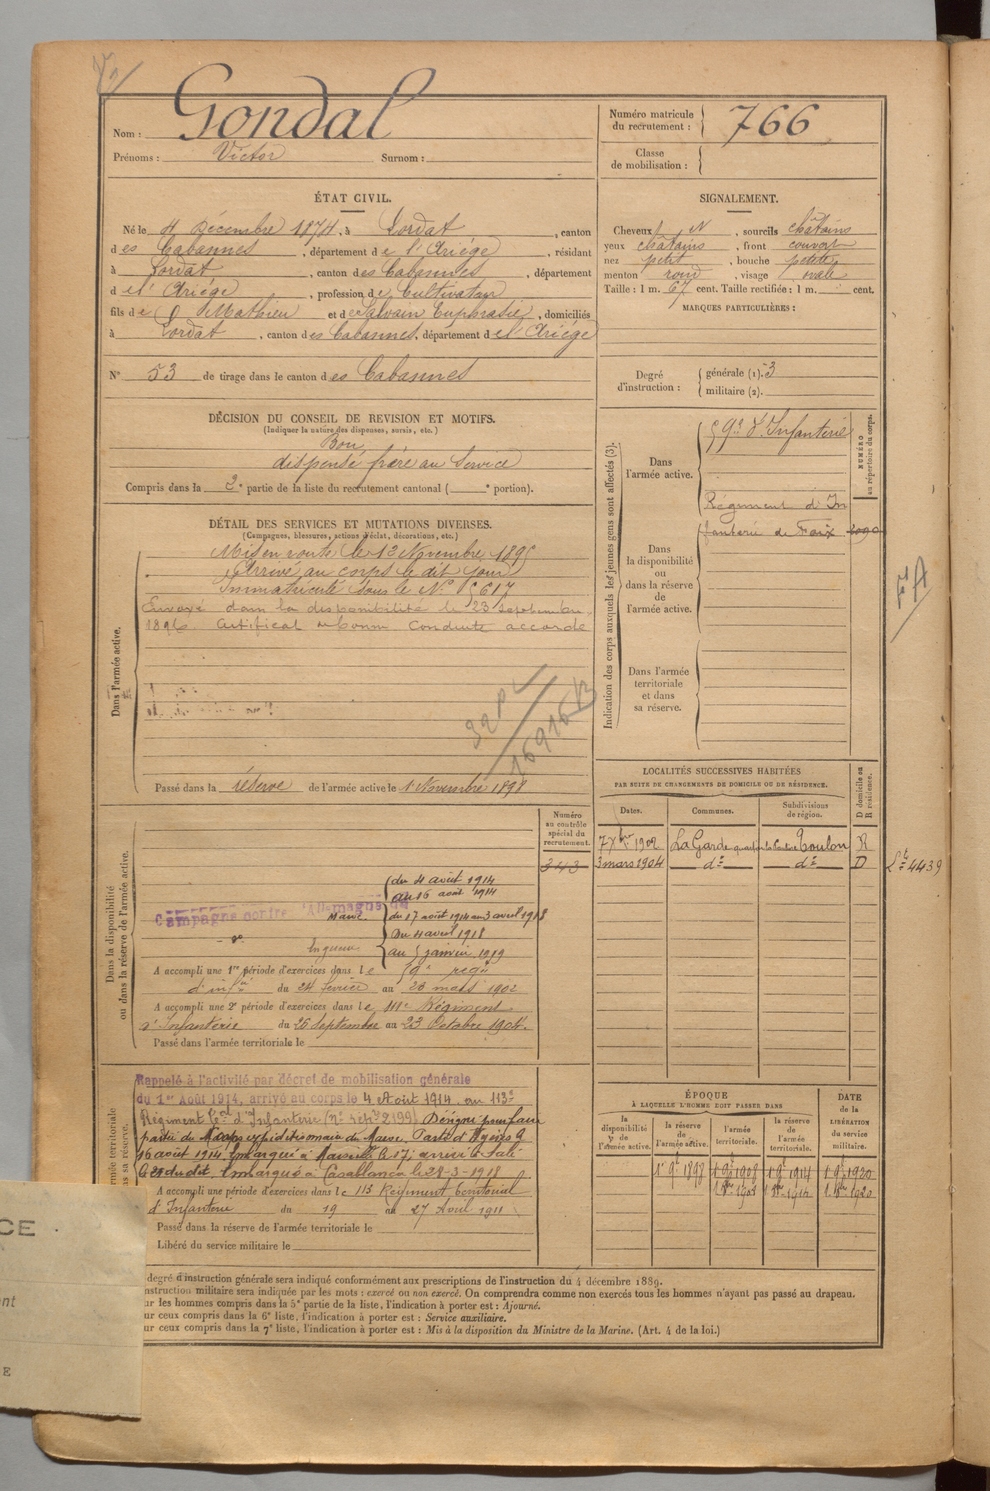 Nom : Gondal
Prénoms : Victor Surnom :
Numéro matricule du recrutement : 766
Classe de mobilisation :
ÉTAT CIVIL.
Né le 4 Décembre 1874, à Lordat, canton
des Cabannes, département de l'Ariége, résidant
à Lordat, canton des Cabannes, département
de l'Ariége, profession de Cultivateur
fils de Mathieu et de Salvain Euphrasie, domiciliés
à Lordat, canton des Cabannes, département de l'Ariége
N° 53 de tirage dans le canton des Cabannes
SIGNALEMENT.
Cheveux N, sourcils châtains
yeux châtains, front couvert
nez petit, bouche petite
menton rond, visage ovale
Taille : 1 m. 67 cent. Taille rectifiée : 1 m. cent.
MARQUES PARTICULIÈRES :
Degré d'instruction : générale (1). 3
militaire (2).
DÉCISION DU CONSEIL DE REVISION ET MOTIFS.
(Indiquer la nature des dispenses, sursis, etc.)
Bon
dispensé frère au Service
Compris dans la 2e partie de la liste du recrutement cantonal ( e portion).
DÉTAIL DES SERVICES ET MUTATIONS DIVERSES.
(Campagnes, blessures, actions d'éclat, décorations, etc.)
Dans l'armée active.
Mis en route le 13 Novembre 1895
Arrivé au corps le dit jour
Immatriculé sous le N° 5617
Envoyé dans la disponibilité le 23 septembre
1896. Certificat de bonne Conduite accordé
32 P
16916 B
Passé dans la réserve de l'armée active le 1 Novembre 1898
Indication des corps auxquels les jeunes gens sont affectés (3).
NUMÉRO au répertoire du corps.
Dans l'armée active.
59e d'Infanterie
Dans la disponibilité ou dans la réserve de l'armée active.
Régiment d'In
fanterie de Foix
Dans l'armée territoriale et dans sa réserve.
LOCALITÉS SUCCESSIVES HABITÉES
PAR SUITE DE CHANGEMENTS DE DOMICILE OU DE RÉSIDENCE.
Dates. Communes. Subdivisions de région. D domicile ou R résidence.
7 Xbre 1902 La Garde Toulon R
3 mars 1904 do do D
4439
Dans la disponibilité ou dans la réserve de l'armée active.
Numéro au contrôle spécial du recrutement.
343
Campagne contre l'Allemagne
du 4 août 1914
au 16 août 1914
Maroc du 17 août 1914 au 3 avril 1918
Du 4 avril 1918
au 5 janvier 1919
A accompli une 1re période d'exercices dans le 59e regt
d'infrie du 24 fevrier au 23 mars 1902
A accompli une 2e période d'exercices dans le 111e Régiment
d'Infanterie du 26 Septembre au 23 Octobre 1904.
Passé dans l'armée territoriale le
Rappelé à l'activité par décret de mobilisation générale
du 1er Août 1914, arrivé au corps le 4 Août 1914. au 113e
Régiment Tal d'Infanterie (n° répre 2199) Désigné pour faire
partie du Corps expéditionnaire du Maroc. Parti d'Hyères le
16 août 1914 Embarqué à Marseille le 17; arrivé à Salé
le 21 du dit. Embarqué à Casablanca le 28-3-1918
A accompli une période d'exercices dans le 113 Régiment territorial
d'Infanterie du 19 au 27 Avril 1911
Passé dans la réserve de l'armée territoriale le
Libéré du service militaire le
ÉPOQUE
À LAQUELLE L'HOMME DOIT PASSER DANS
DATE de la LIBÉRATION du service militaire.
la disponibilité de l'armée active.
la réserve de l'armée active.
l'armée territoriale.
la réserve de l'armée territoriale.
1 9 1898 1 9 1908 1 9 1914 1 9 1920
degré d'instruction générale sera indiqué conformément aux prescriptions de l'instruction du 4 décembre 1889.
nstruction militaire sera indiquée par les mots : exercé ou non exercé. On comprendra comme non exercés tous les hommes n'ayant pas passé au drapeau.
ur les hommes compris dans la 5e partie de la liste, l'indication à porter est : Ajourné.
ur ceux compris dans la 6e liste, l'indication à porter est : Service auxiliaire.
ur ceux compris dans la 7e liste, l'indication à porter est : Mis à la disposition du Ministre de la Marine. (Art. 4 de la loi.)
CE
nt
E